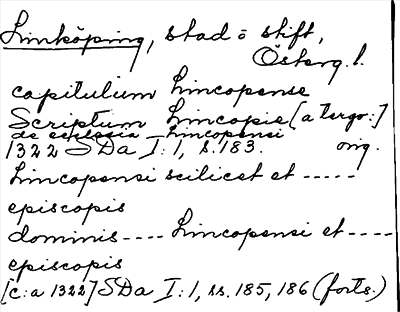 Linköping, stad o stift,
Österg. l.
capitulum Lincopense
Scriptum Lincopie [a tergo:]
de ecclesia Lincopensi
1322 SDa I: 1, s. 183. orig.
Lincopensi scilicet et -----
episcopis
dominis ---- Lincopensi et ----
episcopis
[c:a 1322] SDa I: 1, ss. 185, 186 (forts.)